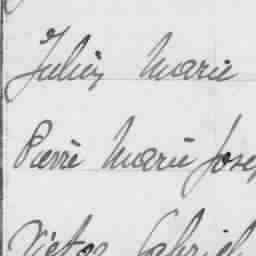 Julien Marie
Pierre Marie Jose
Victor Gabriel